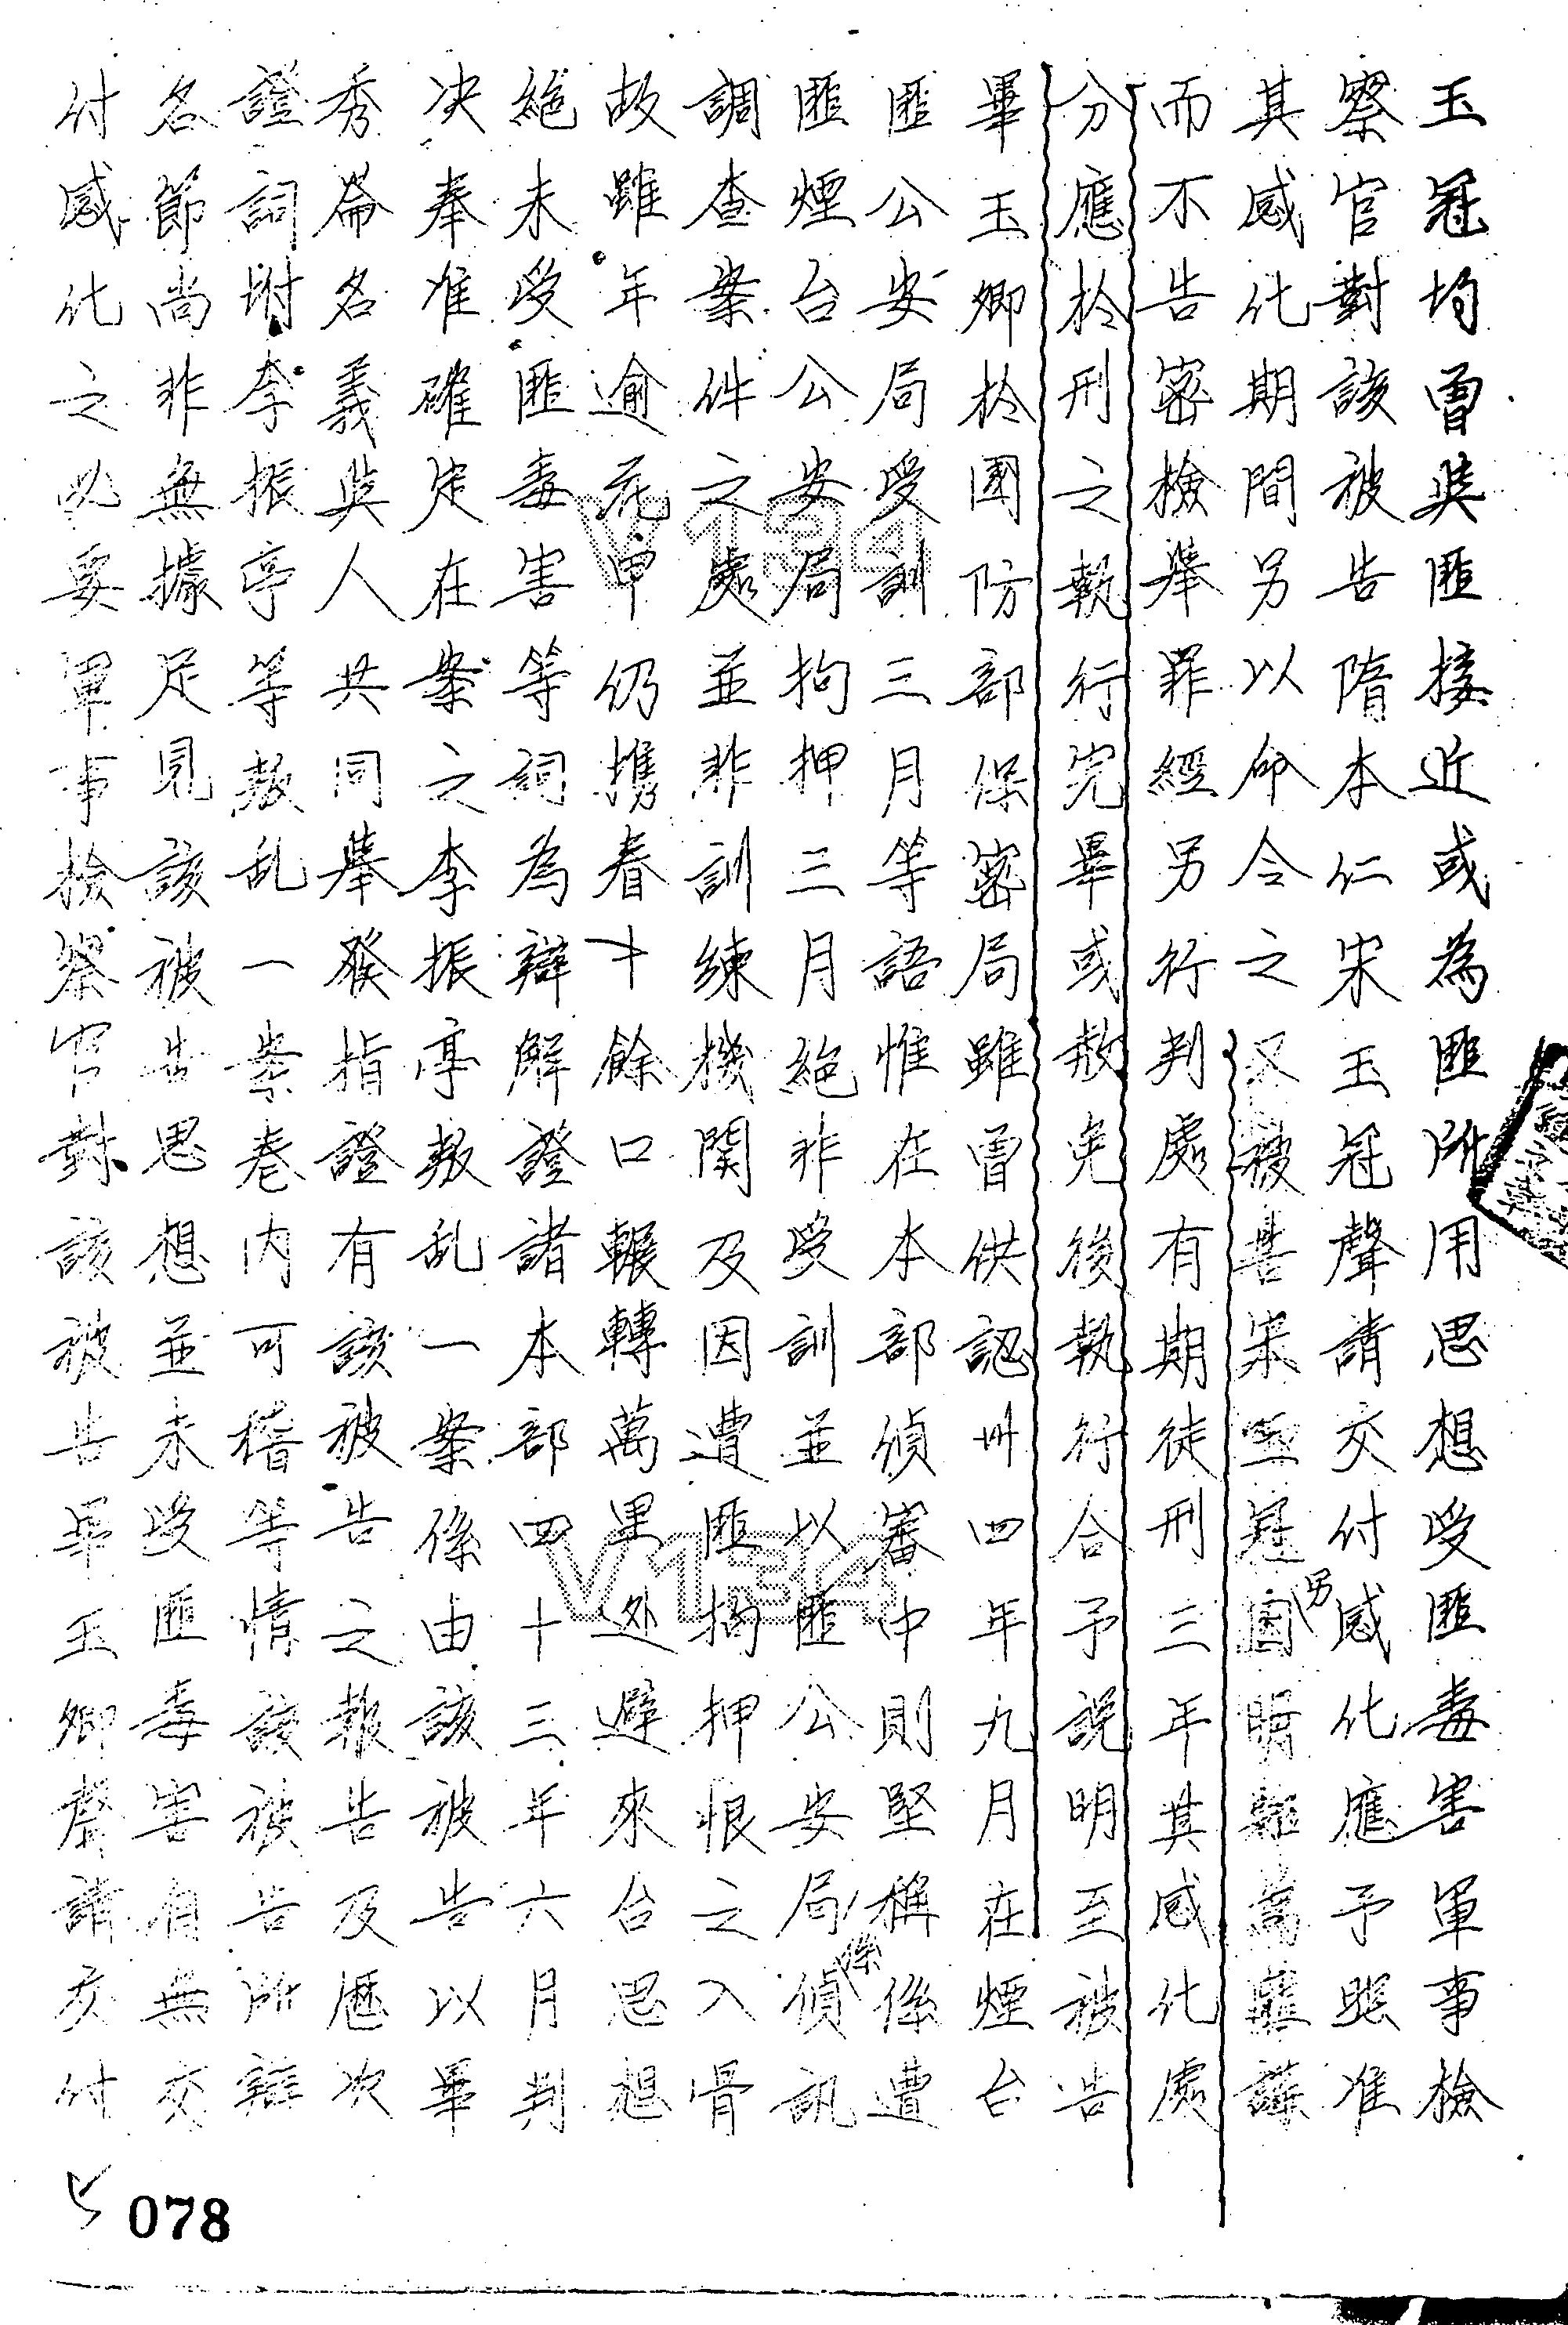 玉冠均曾與匪接近或為匪所用思想受匪毒害軍事檢
察官對該被告隋本仁宋玉冠聲請交付感化應予照准
其感化期間另以命令之又被告宋玉冠因另明知為匪諜
而不告密檢舉罪經另行判處有期徒刑三年其感化處
分應於刑之執行完畢或赦免後執行合予說明至被告
畢玉卿於國防部保密局雖曾供認卅四年九月在煙台
匪公安局受訓三月等語惟在本部偵審中則堅稱係遭
匪煙台公安局拘押三月絕非受訓並以匪公安局係偵訊
調查案件之處並非訓練機關及因遭匪拘押恨之入骨
故雖年逾花甲仍携眷十餘口輾轉萬里逃避來台思想
絕未受匪毒害等詞為辯解證諸本部四十三年六月判
决奉准確定在案之李振亭叛乱一案係由該被告以畢
秀崙名義與人共同舉發指證有該被告之報告及歷次
證詞附李振亭等叛乱一案卷內可稽等情該被告所辯
各節尚非無據足見該被告思想並未受匪毒害自無交
付感化之必要軍事檢察官對該被告畢玉卿聲請交付
078
V134
V134